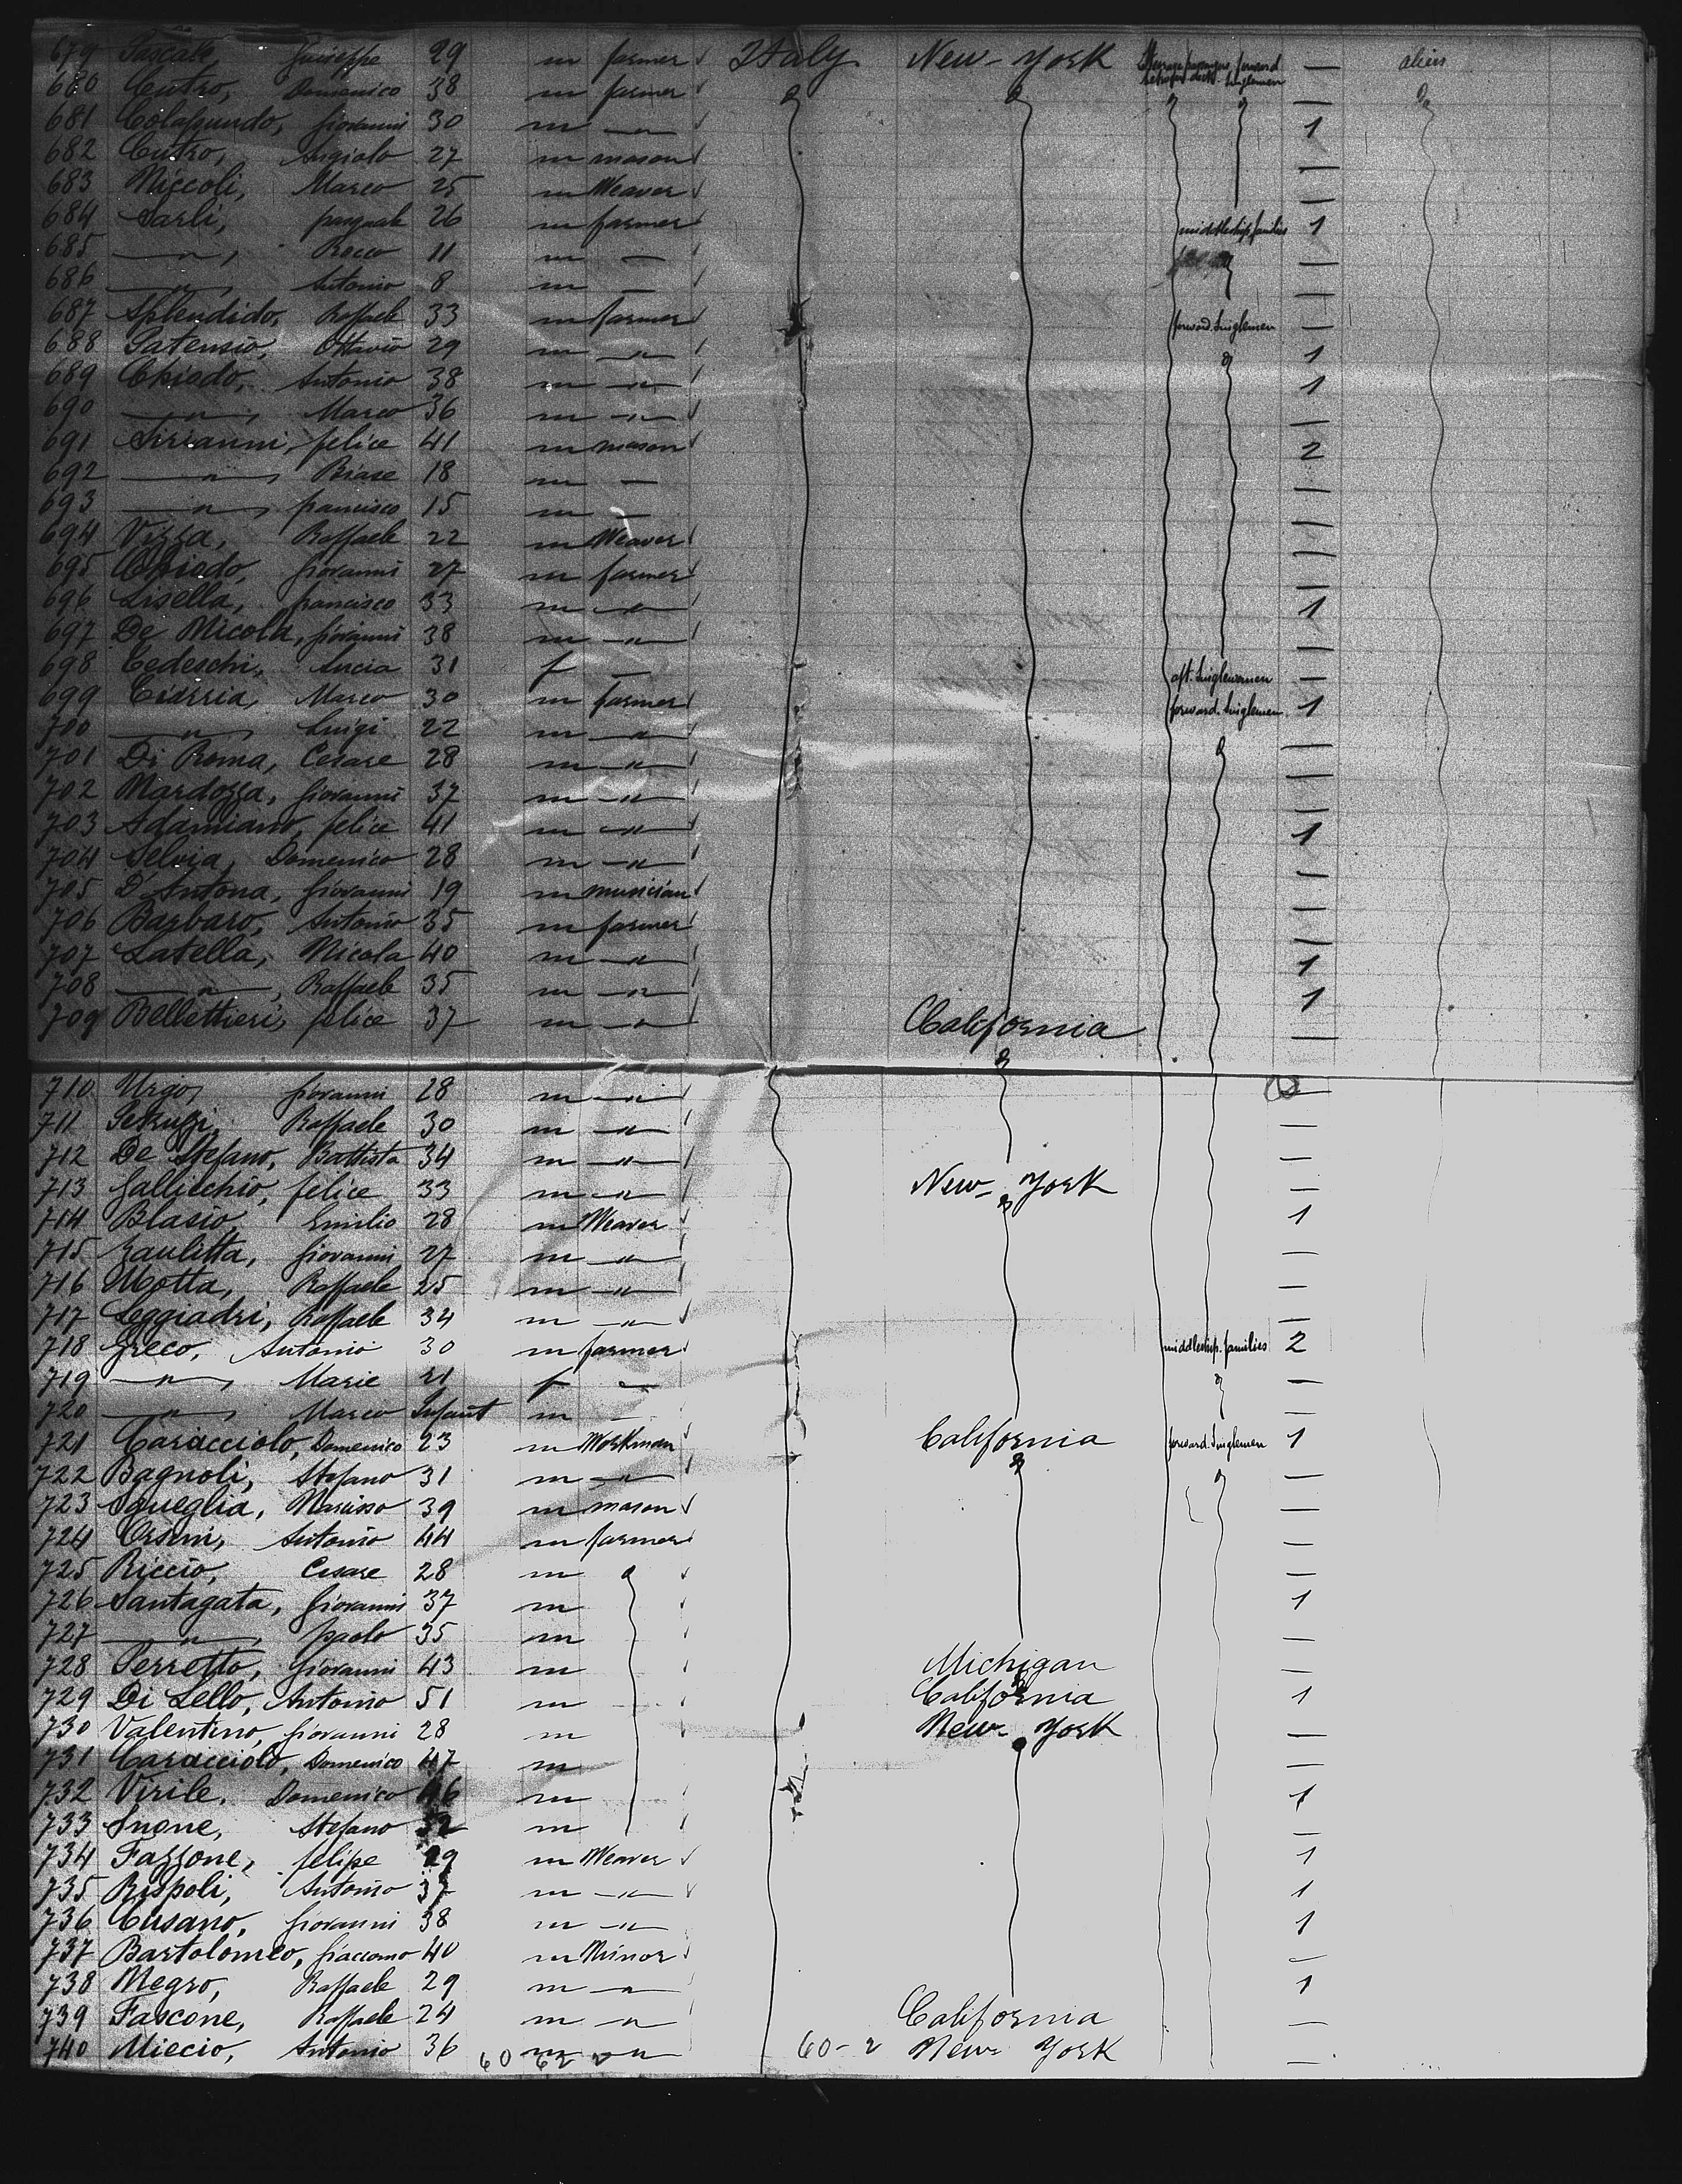 679 Pascale, Giuseppe 29 m farmer Italy New-York Steerage passengers forward between decks Singlemen — aliens
680 Cutro, Domenico 38 m farmer —
681 Colapundo, Giovanni 30 m —"— 1
682 Cutro, Angiolo 27 m mason —
683 Niccoli, Marco 25 m Weaver —
684 Sarli, pasquale 26 m farmer middleship families 1
685 —"—, Rocco 11 m — —
686 —"—, Antonio 8 m — —
687 Splendido, Raffaele 33 m farmer forward. Singlemen —
688 Satensio, Ottavio 29 m —"— 1
689 Chiodo, Antonio 38 m —"— 1
690 —"—, Marco 36 m —"— —
691 Sirianni, felice 41 m mason 2
692 —"—, Biase 18 m — —
693 —"—, francisco 15 m — —
694 Vizza, Raffaele 22 m Weaver —
695 Chiodo, Giovanni 27 m farmer —
696 Lisella, francisco 33 m —"— 1
697 De Nicola, Giovanni 38 m —"— —
698 Cedeschi, Lucia 31 f — aft. Singlewomen —
699 Ciarria, Marco 30 m farmer forward. Singlemen 1
700 —"—, Luigi 22 m —"— —
701 Di Roma, Cesare 28 m —"— —
702 Mardozza, Giovanni 37 m —"— —
703 Adamiano, felice 41 m —"— 1
704 Selvia, Domenico 28 m —"— —
705 D'Antona, Giovanni 19 m musician —
706 Barbaro, Antonio 35 m farmer —
707 Latella, Nicola 40 m —"— 1
708 —"—, Raffaele 35 m —"— 1
709 Bellettieri, felice 37 m —"— California —
710 Urgo, Giovanni 28 m —"— —
711 Raffaele 30 m —"— —
712 De Stefano, Battista 34 m —"— —
713 Gallicchio, felice 33 m —"— New-York —
714 Blasio, Emilio 28 m Weaver 1
715 Zaulitta, Giovanni 27 m —"— —
716 Motta, Raffaele 25 m —"— —
717 Leggiadri, Raffaele 34 m —"— —
718 Greco, Antonio 30 m farmer middleship. families 2
719 —"—, Marie 21 f — —
720 —"—, Marco Infant m — —
721 Caracciolo, Domenico 23 m Workman California forward. Singlemen 1
722 Bagnoli, Stefano 31 m —"— —
723 Squeglia, Narcisso 39 m mason —
724 Orsini, Antonio 44 m farmer —
725 Riccio, Cesare 28 m —
726 Santagata, Giovanni 37 m 1
727 —"—, paolo 35 m —
728 Perretto, Giovanni 43 m Michigan —
729 Di Lello, Antonio 51 m California 1
730 Valentino, Giovanni 28 m New-York —
731 Caracciolo, Domenico 47 m —
732 Virile, Domenico 46 m 1
733 Snone, Stefano 32 m —
734 Fazzone, felipe 29 m Weaver 1
735 Rispoli, Antonio 37 m —"— 1
736 Cusano, Giovanni 38 m —"— 1
737 Bartolomeo, Giaccomo 40 m Minor —
738 Negro, Raffaele 29 m —"— 1
739 Fascone, Raffaele 24 m —"— California —
740 Miecio, Antonio 36 m —"— New-York —
60 62 60-2